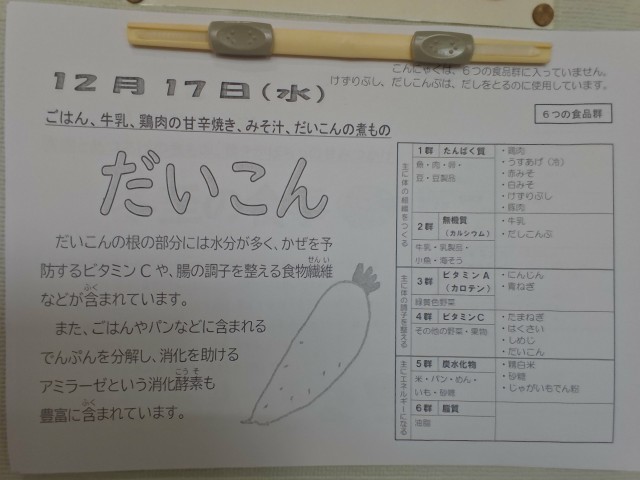 こんにゃくは、6つの食品群に入っていません。
けずりぶし、だしこんぶは、だしをとるのに使用しています。
12月17日(水)
6つの食品群
ごはん、牛乳、鶏肉の甘辛焼き、みそ汁、だいこんの煮もの
だいこん
だいこんの根の部分には水分が多く、かぜを予
防するビタミンCや、腸の調子を整える食物繊維
せんい
などが含まれています。
ふく
また、ごはんやパンなどに含まれる
でんぷんを分解し、消化を助ける
アミラーゼという消化酵素も
こうそ
豊富に含まれています。
ふく
主に体の組織をつくる
1群 たんぱく質
魚・肉・卵・
豆・豆製品
・鶏肉
・うすあげ(冷)
・赤みそ
・白みそ
・けずりぶし
・鶏肉
2群 無機質
(カルシウム)
牛乳・乳製品・
小魚・海そう
・牛乳
・だしこんぶ
主に体の調子を整える
3群 ビタミンA
(カロテン)
緑黄色野菜
・にんじん
・青ねぎ
4群 ビタミンC
その他の野菜・果物
・たまねぎ
・はくさい
・しめじ
・だいこん
主にエネルギーになる
5群 炭水化物
米・パン・めん・
いも・砂糖
・精白米
・砂糖
・じゃがいもでん粉
6群 脂質
油脂